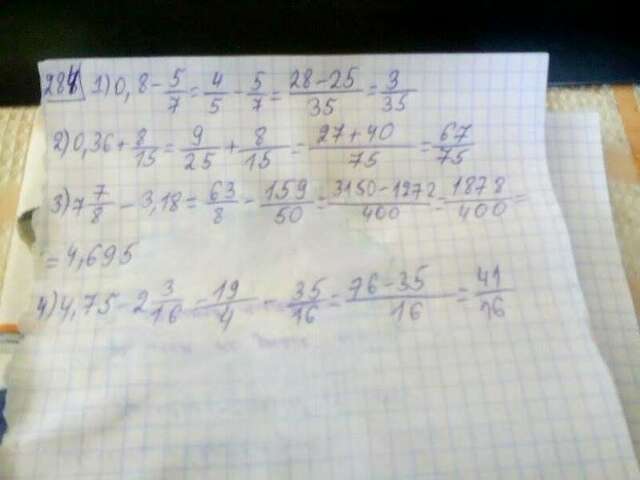 284 1) 0,8 - 5/7 = 4/5 - 5/7 = 28-25/35 = 3/35
2) 0,36 + 8/15 = 9/25 + 8/15 = 27+40/75 = 67/75
3) 7 7/8 - 3,18 = 63/8 - 159/50 = 3150-1272/400 = 1878/400 =
= 4,695
4) 4,75 - 2 3/16 = 19/4 - 35/16 = 76-35/16 = 41/16